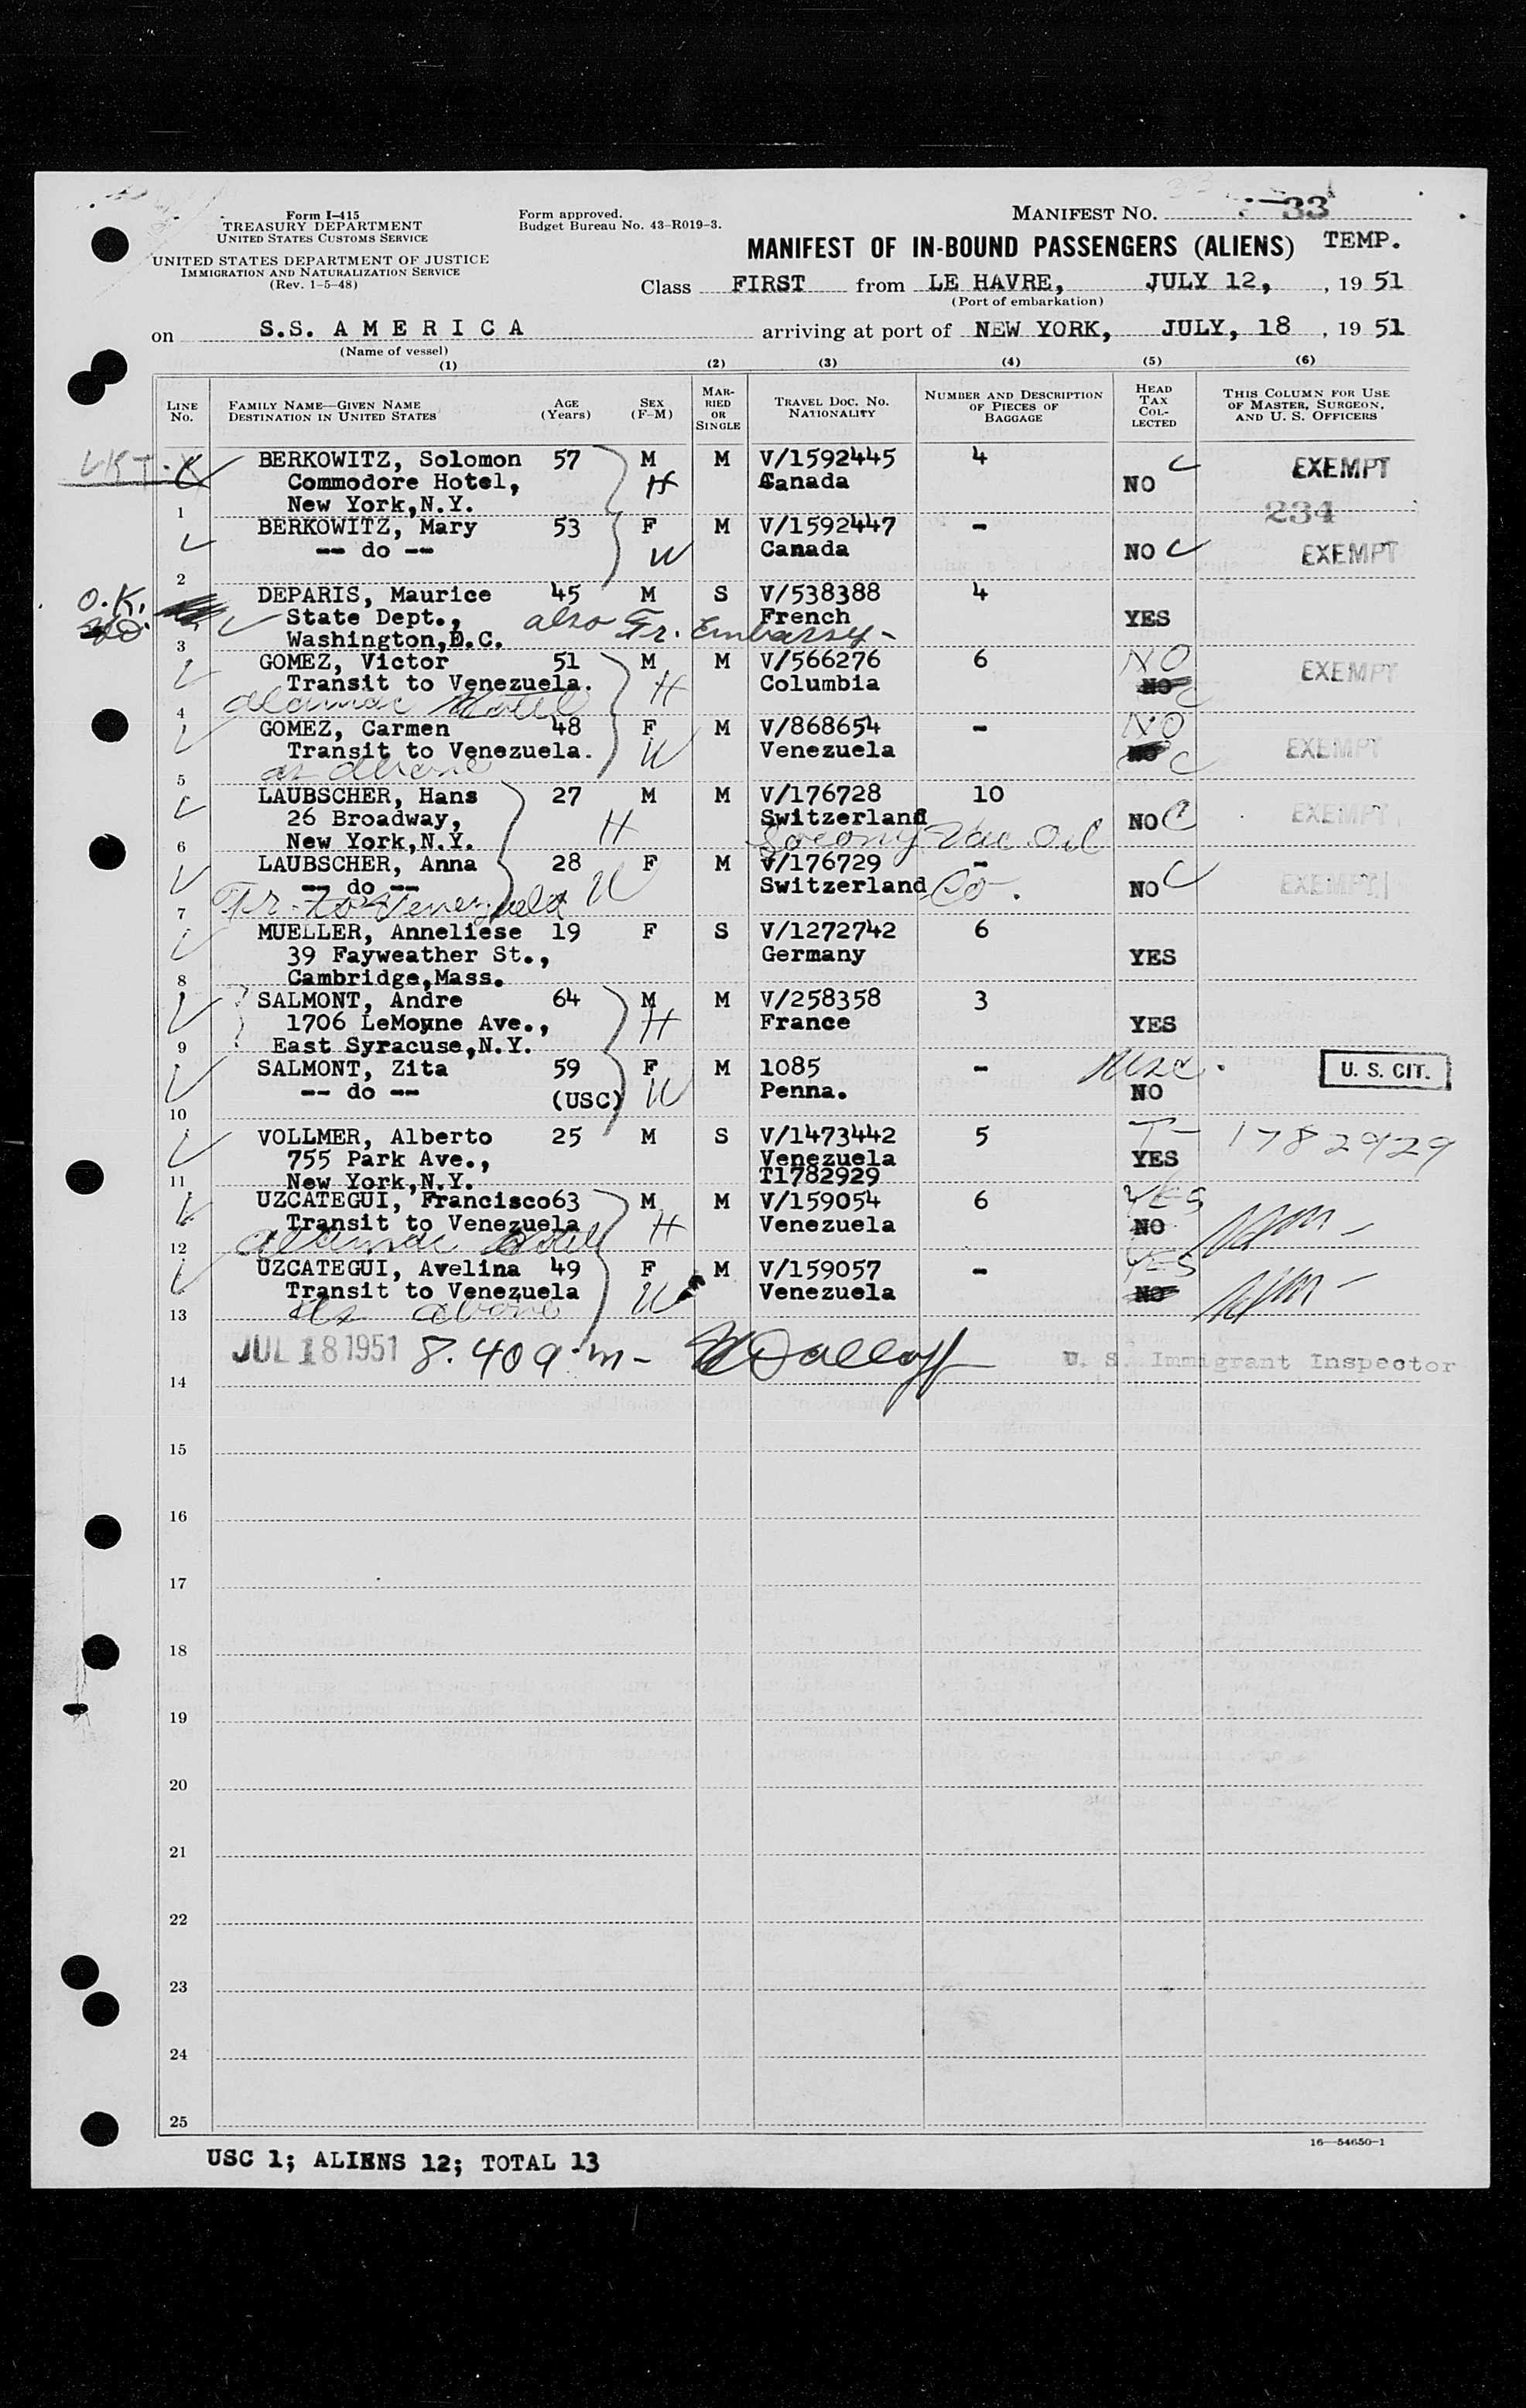 Form I-415
TREASURY DEPARTMENT
UNITED STATES CUSTOMS SERVICE
UNITED STATES DEPARTMENT OF JUSTICE
IMMIGRATION AND NATURALIZATION SERVICE
(Rev. 1-5-48)
Form approved.
Budget Bureau No. 43-R019-3.
MANIFEST NO. 33
MANIFEST OF IN-BOUND PASSENGERS (ALIENS) TEMP.
Class FIRST from LE HAVRE, JULY 12, , 19 51
(Port of embarkation)
on S.S. A M E R I C A arriving at port of NEW YORK, JULY, 18 , 19 51
(Name of vessel)
(1) (2) (3) (4) (5) (6)
LINE NO. FAMILY NAME—GIVEN NAME DESTINATION IN UNITED STATES AGE (Years) SEX (F-M) MARRIED OR SINGLE TRAVEL DOC. NO. NATIONALITY NUMBER AND DESCRIPTION OF PIECES OF BAGGAGE HEAD TAX COLLECTED THIS COLUMN FOR USE OF MASTER, SURGEON, AND U. S. OFFICERS
BERKOWITZ, Solomon 57 M M V/1592445 4 C EXEMPT
Commodore Hotel, H Canada NO
1 New York,N.Y. 234
BERKOWITZ, Mary 53 F M V/1592447 -
-- do -- W Canada NO C EXEMPT
2
O.K. DEPARIS, Maurice 45 M S V/538388 4
State Dept., also Fr. Embassy- French YES
3 Washington,D.C.
GOMEZ, Victor 51 M M V/566276 6 NO EXEMPT
Transit to Venezuela. H Columbia NO C
4 Alamac Hotel
GOMEZ, Carmen 48 F M V/868654 - NO
Transit to Venezuela. W Venezuela NO C EXEMPT
5 as above
LAUBSCHER, Hans 27 M M V/176728 10
26 Broadway, H Switzerland NO C EXEMPT
6 New York,N.Y. Socony Vac. Oil
LAUBSCHER, Anna 28 F M V/176729 -
-- do -- W Switzerland Co. NO C EXEMPT
7 Tr. to Venezuela
MUELLER, Anneliese 19 F S V/1272742 6
39 Fayweather St., Germany YES
8 Cambridge,Mass.
SALMONT, Andre 64 M M V/258358 3
1706 LeMoyne Ave., H France YES
9 East Syracuse,N.Y.
SALMONT, Zita 59 F M 1085 - U. S. CIT.
-- do -- (USC) W Penna. NO
10
VOLLMER, Alberto 25 M S V/1473442 5 T- 1782929
755 Park Ave., Venezuela YES
11 New York,N.Y. T1782929
UZCATEGUI, Francisco 63 M M V/159054 6 YES
Transit to Venezuela H Venezuela NO
12 Alamac Hotel
UZCATEGUI, Avelina 49 F M V/159057 - YES
Transit to Venezuela W Venezuela NO
13 as above
JUL 18 1951 8.40 a.m- U. S. Immigrant Inspector
14
15
16
17
18
19
20
21
22
23
24
25
16—54650-1
USC 1; ALIENS 12; TOTAL 13